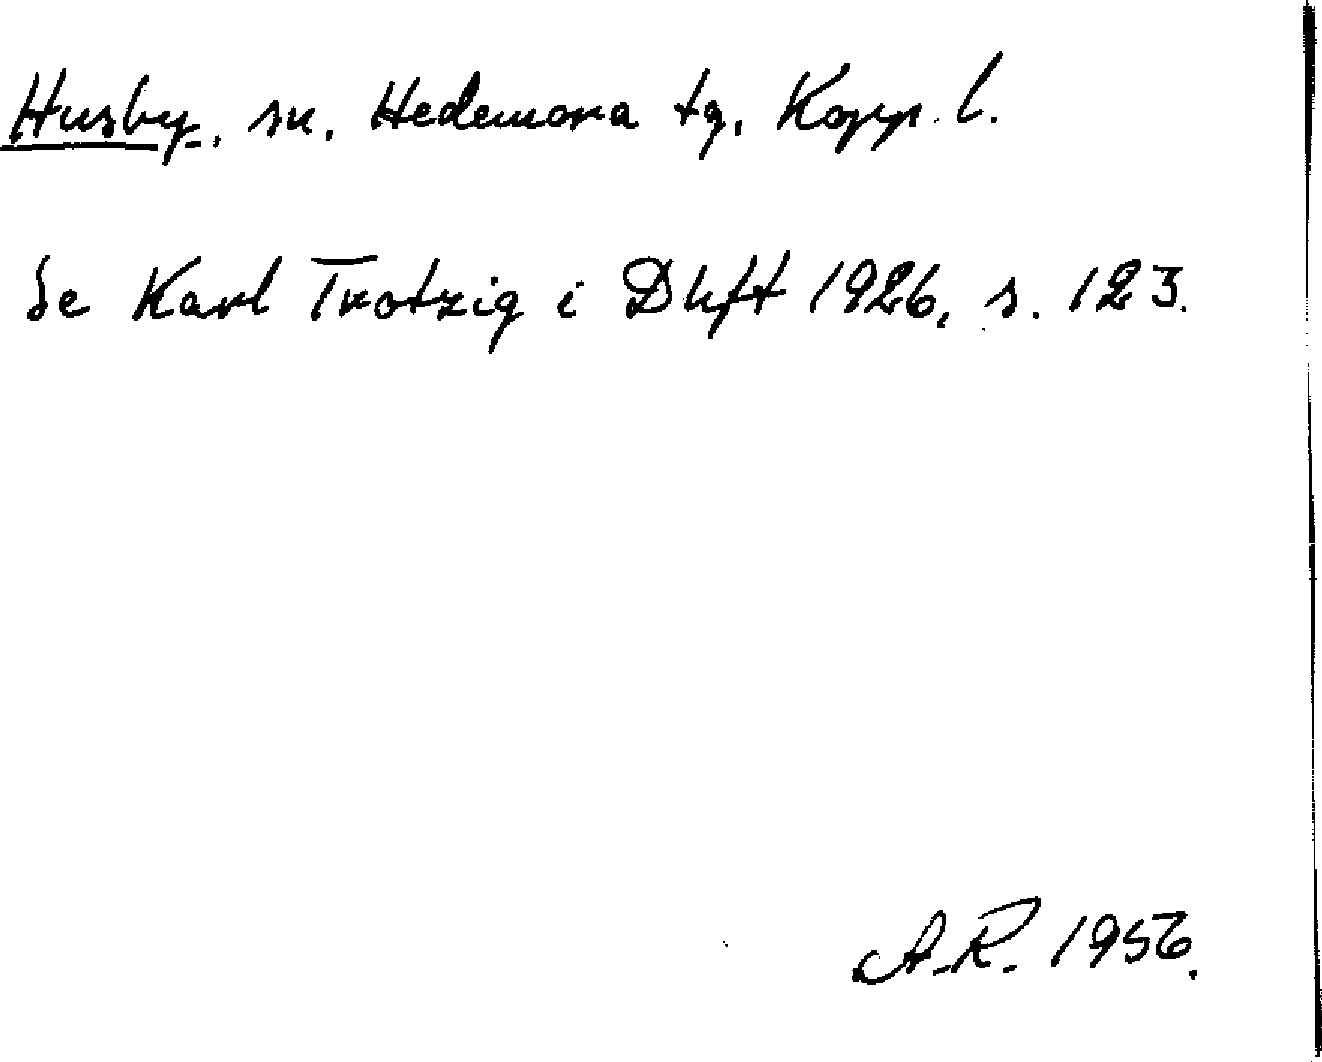 Husby, sn. Hedemora tg. Kopp. l.
Se Karl Trotzig i Dhft 1926, s. 123.
A.R. 1956.